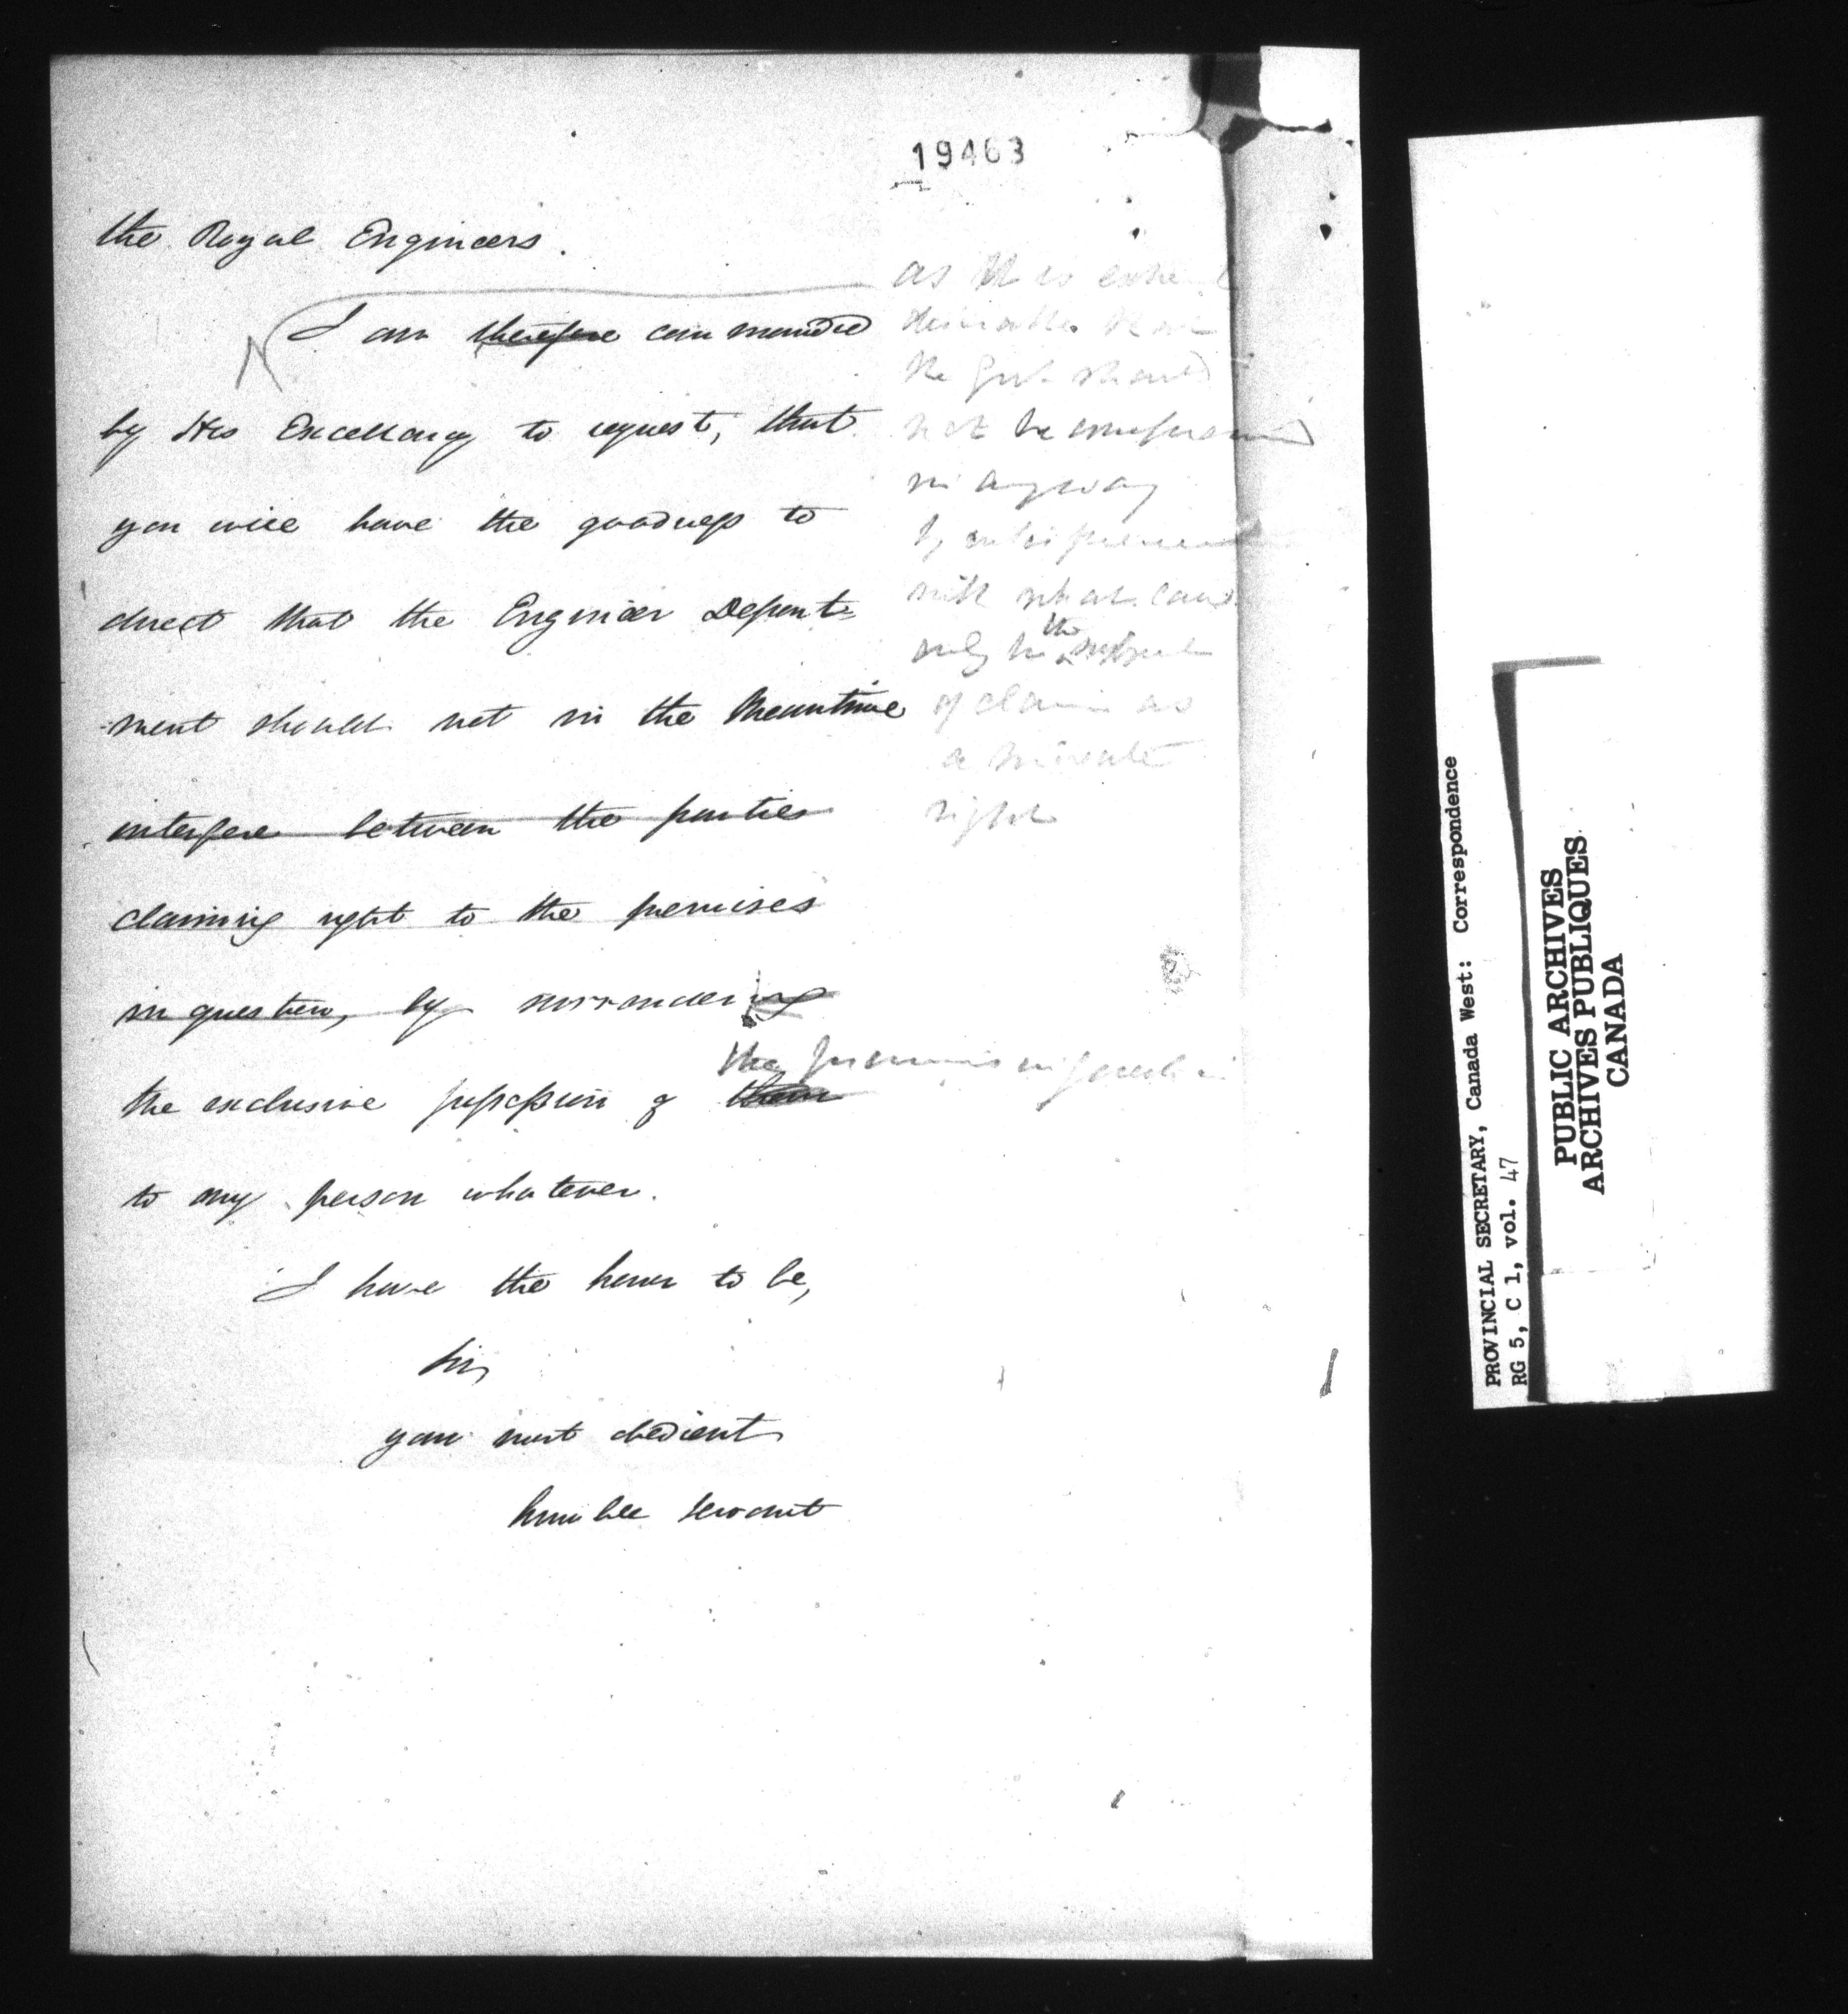 19463
the Royal Engineers.
I am therefore commanded
by His Excellency to request, that
you will have the goodness to
direct that the Engineer Depart=
-ment should not in the Meantime
interfere between the parties
claiming right to the premises
in question, by surrendering
the premises in question
the exclusive possession of them
to any person whatever.
I have the honor to be,
Sir,
your most obedient
humble servant
as it is
desirable that
the Govt should
not be
in any way
by
with what can
only be the subject
of claim as
a private
right
PROVINCIAL SECRETARY, Canada West: Correspondence
RG 5, C 1, vol. 47
PUBLIC ARCHIVES
ARCHIVES PUBLIQUES
CANADA